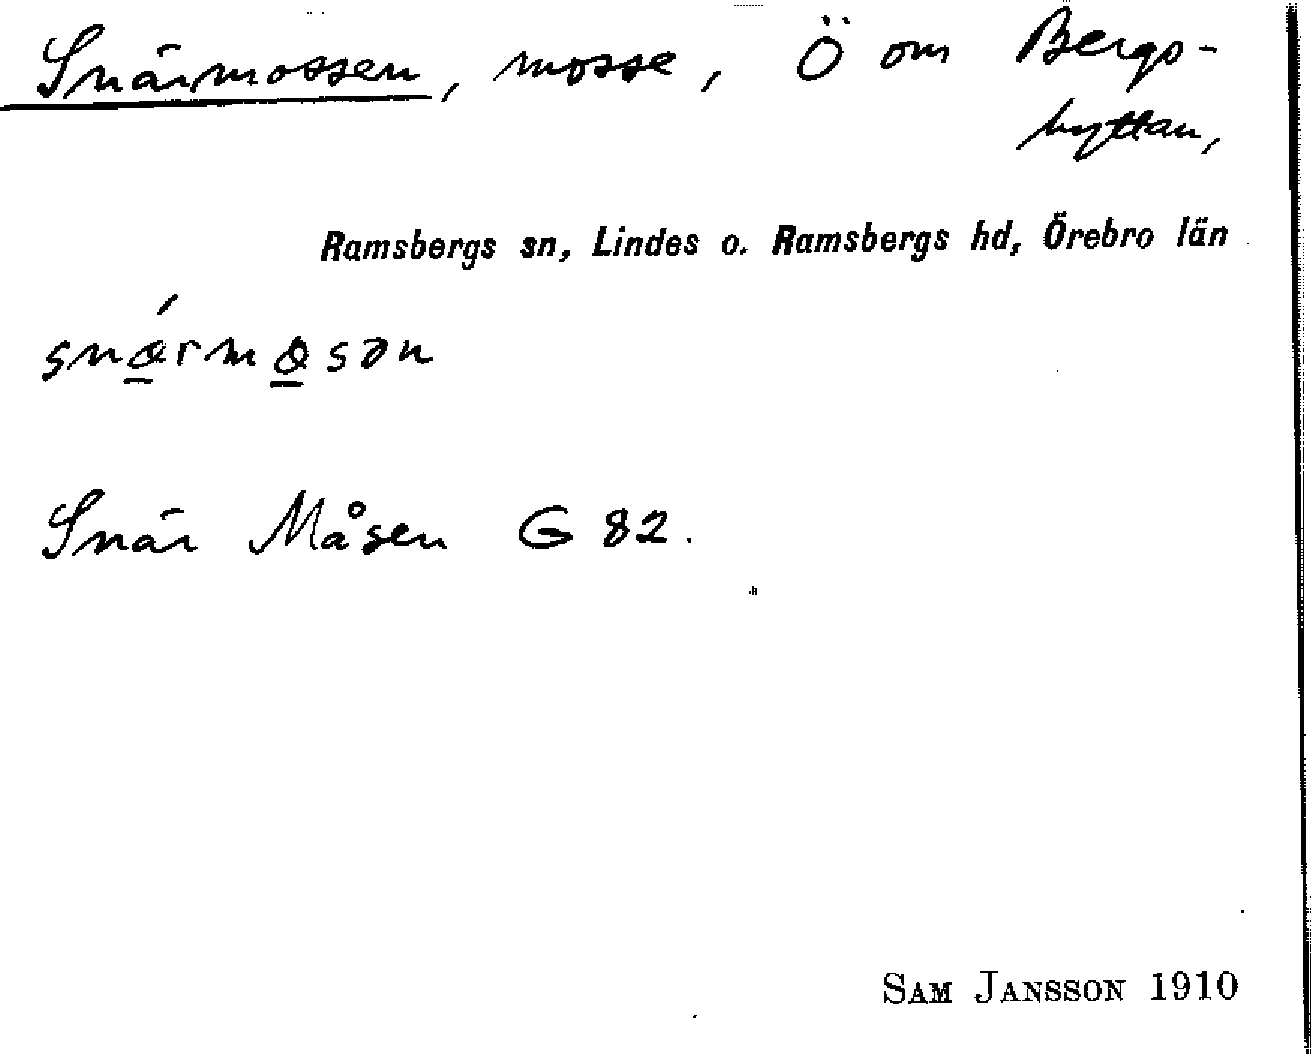 Snärmossen, mosse, Ö om Bergs-
hyttan,
Ramsbergs sn, Lindes o. Ramsbergs hd, Örebro län
Snär Måsen G 82.
SAM JANSSON 1910